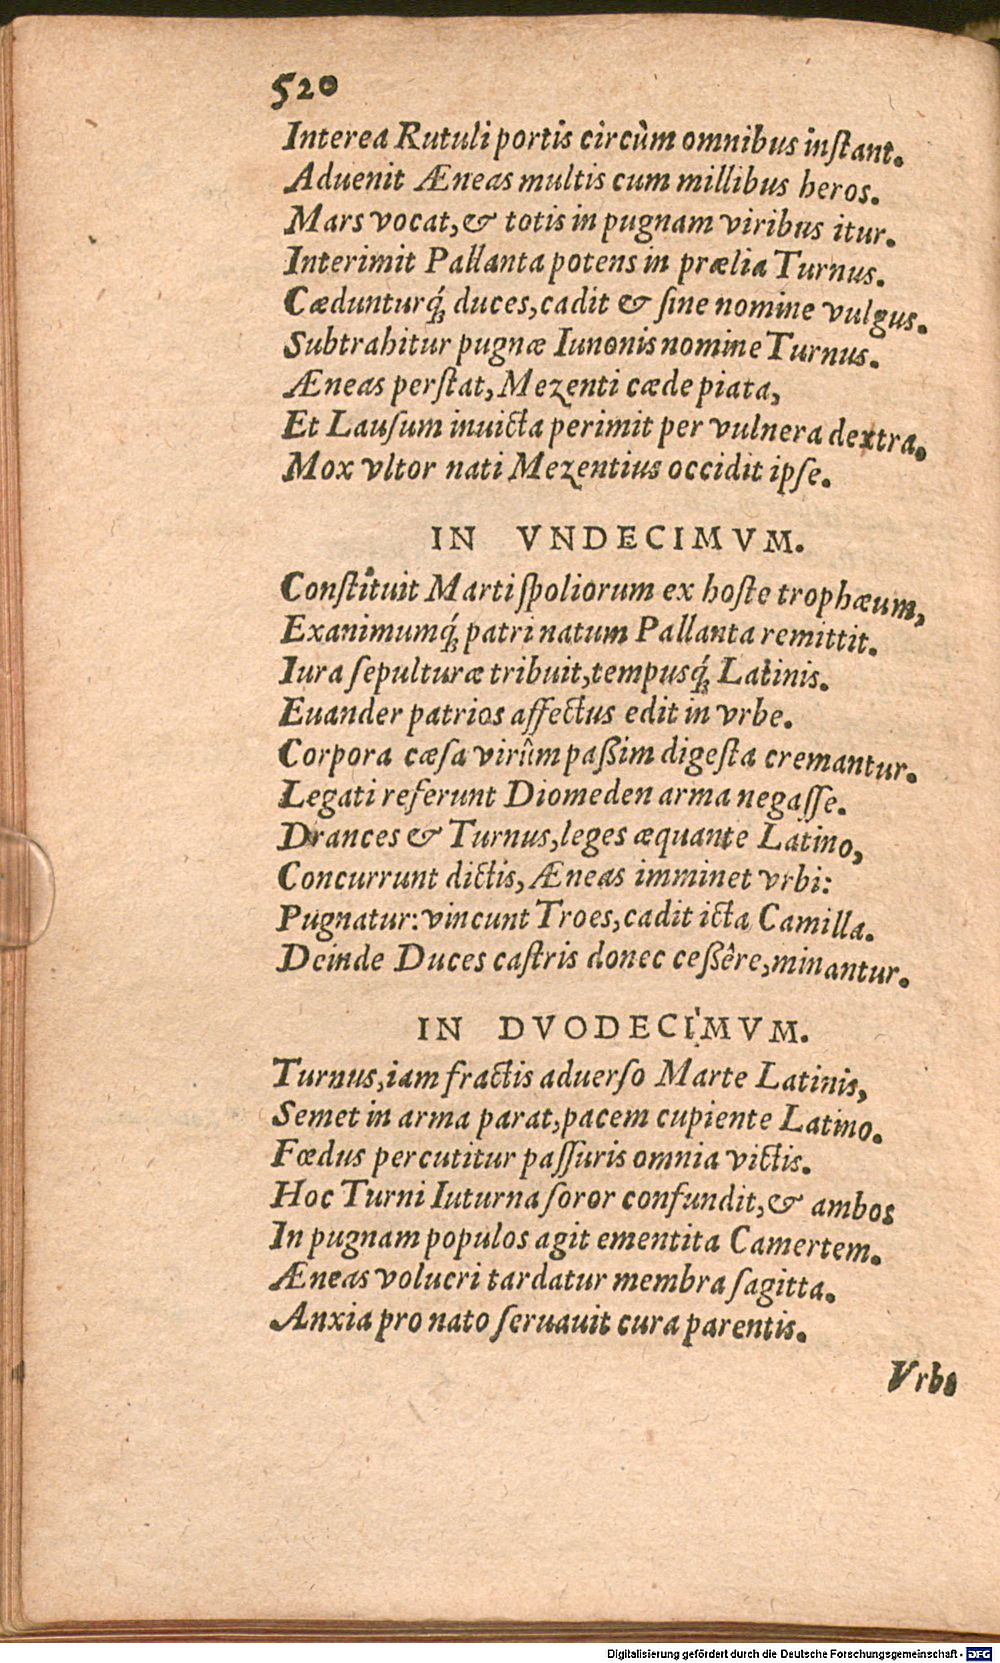 520
Interea Rutuli portis circùm omnibus instant.
Aduenit Æneas multis cum millibus heros.
Mars vocat, & totis in pugnam viribus itur.
Interimit Pallanta potens in prælia Turnus.
Cædunturq́; duces, cadit & sine nomine vulgus.
Subtrahitur pugnæ Iunonis nomine Turnus.
Æneas perstat, Mezenti cæde piata,
Et Lausum inuicta perimit per vulnera dextra.
Mox vltor nati Mezentius occidit ipse.
IN VNDECIMVM.
Constituit Marti spoliorum ex hoste trophæum,
Exanimumq́; patri natum Pallanta remittit.
Iura sepulturæ tribuit, tempusq́; Latinis.
Euander patrios affectus edit in vrbe.
Corpora cæsa virûm paßim digesta cremantur.
Legati referunt Diomeden arma negasse.
Drances & Turnus, leges æquante Latino,
Concurrunt dictis, Æneas imminet vrbi:
Pugnatur: vincunt Troes, cadit icta Camilla.
Deinde Duces castris donec ceßêre, minantur.
IN DVODECIMVM.
Turnus, iam fractis aduerso Marte Latinis,
Semet in arma parat, pacem cupiente Latino.
Fœdus percutitur passuris omnia victis.
Hoc Turni Iuturna soror confundit, & ambos
In pugnam populos agit ementita Camertem.
Æneas volucri tardatur membra sagitta.
Anxia pro nato seruauit cura parentis.
Vrbs
Digitalisierung gefördert durch die Deutsche Forschungsgemeinschaft - DFG